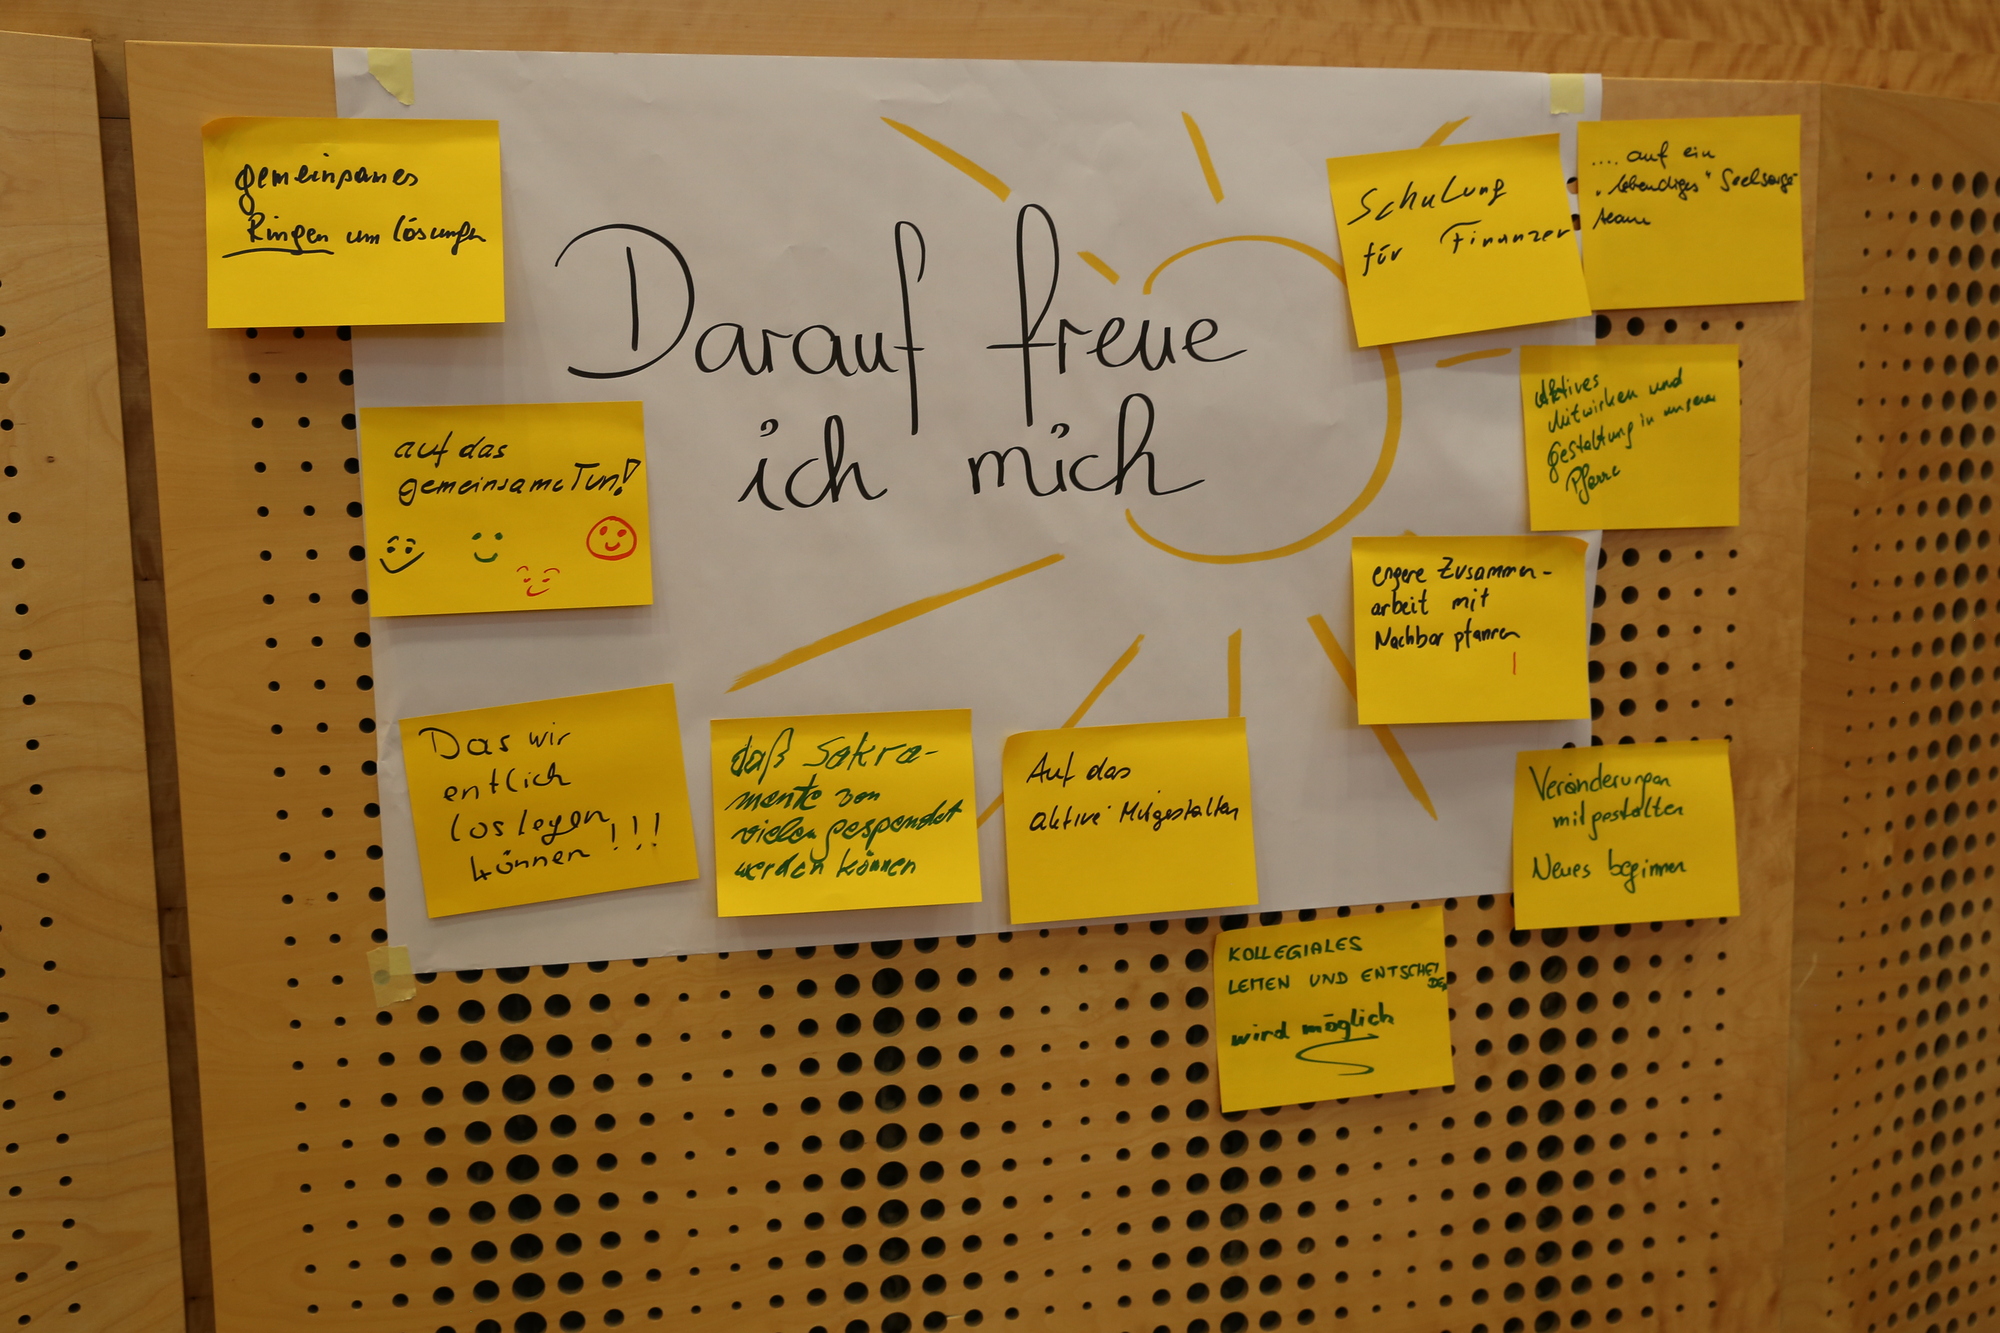 Darauf freue
ich mich
gemeinsames
Ringen um lösungen
auf das
gemeinsame Tun!
Das wir
entlich
loslegen
können !!!
daß Sakra-
mente von
vielen gespendet
werden können
Auf das
aktive Mitgestalten
KOLLEGIALES
LEITEN UND ENTSCHEI
DEN
wird möglich
Veränderungen
mitgestalten
Neues beginnen
engere Zusammen-
arbeit mit
Nachbarpfarren
!
Aktives
Mitwirken und
Gestaltung in unserer
Pfarre
Schulung
für Finanzer
.... auf ein
"lebendiges" Seelsorge-
team